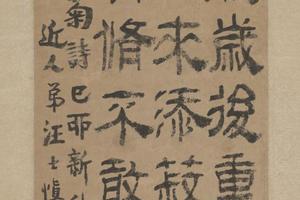 歲後重
添
不敢
菊詩己卯新
近人弟汪士慎